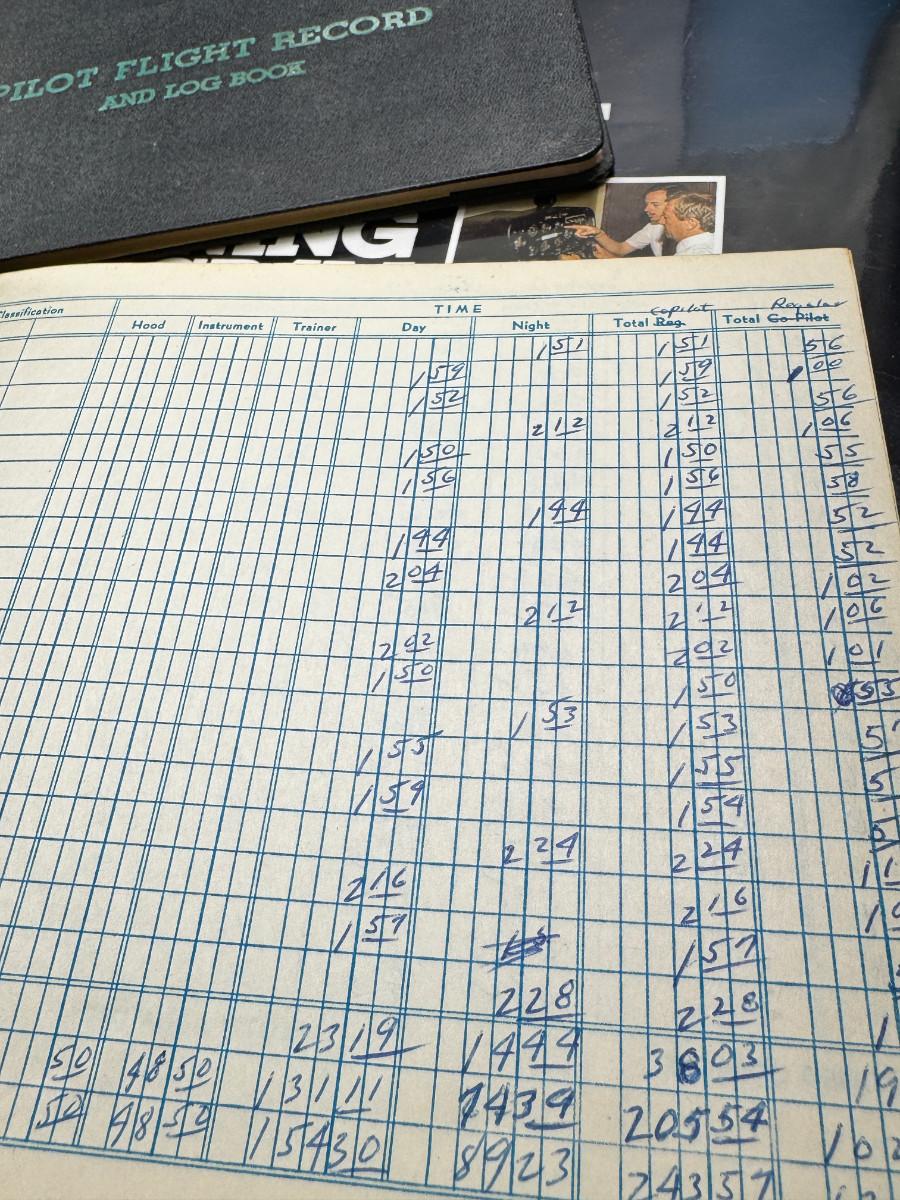 PILOT FLIGHT RECORD
AND LOG BOOK
Classification
TIME
Hood Instrument Trainer Day Night Total Reg. Copilot Total Co-Pilot Regular
1 51 1 51 56
1 59 1 59 1 00
1 52 1 52 56
2 12 2 12 1 06
1 50 1 50 55
1 56 1 56 58
1 44 1 44 52
1 44 1 44 52
2 04 2 04 1 02
2 12 2 12 1 06
2 02 2 02 1 01
1 50 1 50 55
1 53 1 53
1 55 1 55
1 59 1 54
2 24 2 24
2 16 2 16
1 57 1 57
2 28 2 28
23 19 14 44 38 03
50 48 50 131 11 74 39 205 54
50 48 50 154 30 89 23 243 57